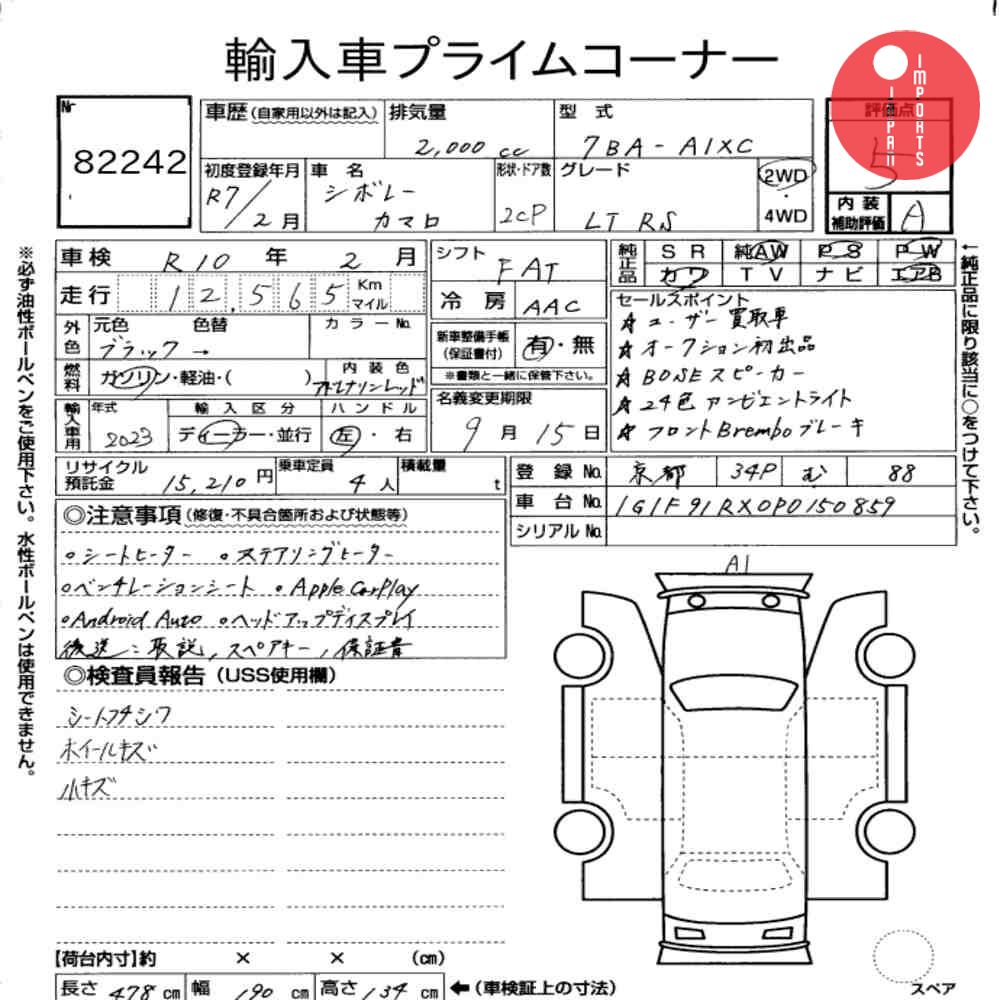 輸入車プライムコーナー
IMPORTS
IIPAII
Nr
82242
車歴(自家用以外は記入)
排気量
2,000 cc
型 式
7BA-A1XC
評価点
5
初度登録年月
R7/2月
車 名
シボレー
カマロ
形状・ドア数
2CP
グレード
LT RS
2WD
・
4WD
内 装
補助評価
A
車検 R10 年 2 月
シフト
FAT
純正品
S R 純AW P S P W
カワ T V ナビ エアB
走行 12,565 Km マイル
冷 房 AAC
セールスポイント
☆ ユーザー買取車
☆ オークション初出品
☆ BOSEスピーカー
☆ 24色アンビエントライト
☆ フロントBremboブレーキ
外色
元色 色替
ブラック →
カラーNo.
新車整備手帳
(保証書付)
有・無
※書類と一緒に保管下さい。
燃料
ガソリン・軽油・( )
内 装 色
アドレナリンレッド
名義変更期限
9 月 15 日
輸入車用
年式
2023
輸 入 区 分
ディーラー・並行
ハ ン ド ル
左・右
リサイクル
預託金
15,210 円
乗車定員
4 人
積載量
t
登 録 No. 京都 34P む 88
車 台 No. 1G1F91RX0P0150859
シリアル No.
◎注意事項(修復・不具合箇所および状態等)
○シートヒーター ○ステアリングヒーター
○ベンチレーションシート ○Apple CarPlay
○Android Auto ○ヘッドアップディスプレイ
後送:取説,スペアキー,保証書
◎検査員報告(USS使用欄)
シートフチシワ
ホイールキズ
小キズ
A1
【荷台内寸】約 × × (cm)
長さ 478 cm 幅 190 cm 高さ 134 cm ←(車検証上の寸法)
スペア
※必ず油性ボールペンをご使用下さい。水性ボールペンは使用できません。
←純正品に限り該当に○をつけて下さい。